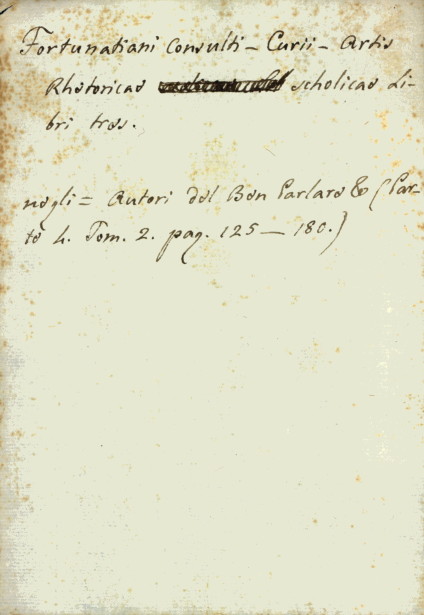 Fortunatiani Consulti - Curii - Artis
Rhetoricae scholicae Li-
bri tres.
negli = Autori del Ben Parlare & (Par-
te 4. Tom. 2. pag. 125 — 180.)